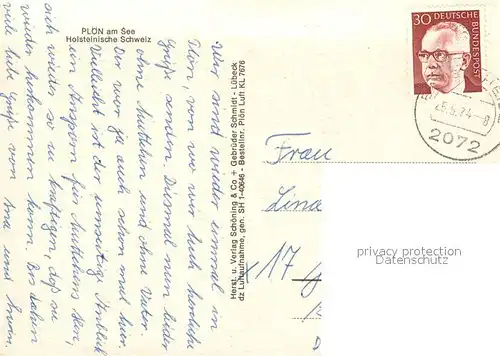 PLÖN am See
Holsteinische Schweiz
Wir sind wieder einmal in
Plön, von wo wir Euch herzliche
Grüße senden. Diesmal nun leider
ohne Muttchen und ohne Vater.
Der war ja auch schon mal hier.
Vielleicht ist der umseitige Anblick
ein Ansporn für Muttchens Herz,
sich wieder so zu kräftigen, daß sie
wieder herkommen kann. Bis dahin
viele liebe Grüße von Ima und
Herst. u. Verlag Schöning & Co + Gebrüder Schmidt - Lübeck
dz Luftaufnahme, gen. SH 1-40646 - Bestellnr. Plön Luft KL 7676
30 DEUTSCHE BUNDESPOST
25.5.74-8
2072
Frau
Lina
17
privacy protection
Datenschutz